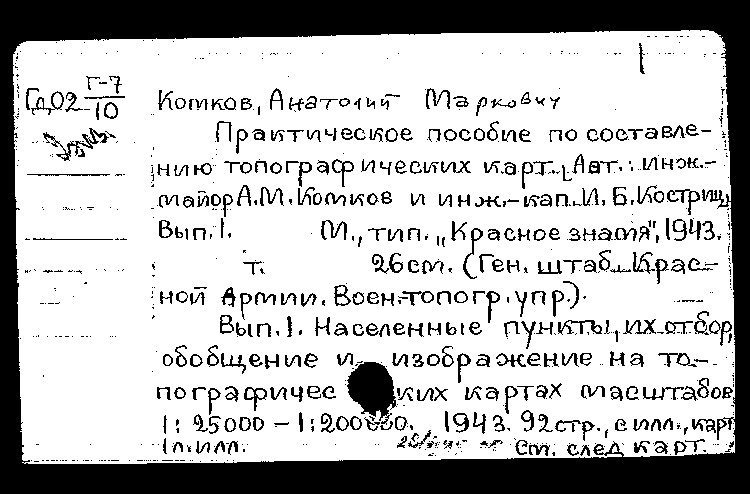 Гд02 Г-7/10
Комков, Анатолий Маркович
Практическое пособие по составле-
нию топографических карт. Авт.: инж.-
майор А.М. Комков и инж.-кап. И. Б. Костриц,
Вып. 1. М., тип. „Красное знамя", 1943.
т. 26 см. (Ген. штаб Крас-
ной Армии. Воен.-топогр. упр.).
Вып. 1. Населенные пункты, их отбор,
обобщение и изображение на то-
пографических картах масштабов
1:25000 – 1:200000. 1943. 92 стр., с илл., карт
1 л. илл.
См. след. карт.